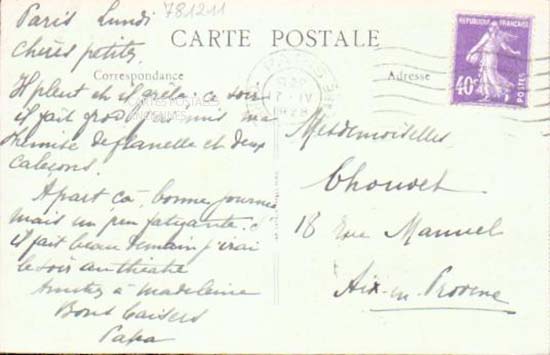 781211
Paris Lundi
Chères petites
CARTE POSTALE
Correspondance
Adresse
REPUBLIQUE FRANÇAISE
40c
POSTES
PARIS
17 IV
1928
Il pleut et il grêle. ce soir
il fait froid j'ai mis ma
chemise de flanelle et deux
caleçons.
CARTES POSTALES
ANCIENNES
A part ça bonne journée
mais un peu fatigante. S'
il fait beau demain j'irai
le soir au théâtre
Amitiés à Madeleine
Bons baisers
Papa
Mesdemoiselles
Chouvet
18 Rue Manuel
Aix-en-Provence